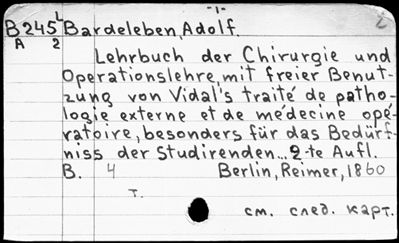 -1-
B245 L Bardeleben, Adolf.
A 2
Lehrbuch der Chirurgie und
Operationslehre, mit freier Benut-
zung von Vidal's traité de patho-
logie externe et de médecine opé-
ratoire, besonders für das Bedürf-
niss der Studirenden... 2-te Aufl.
B. 4 Berlin, Reimer, 1860
т.
см. след. карт.